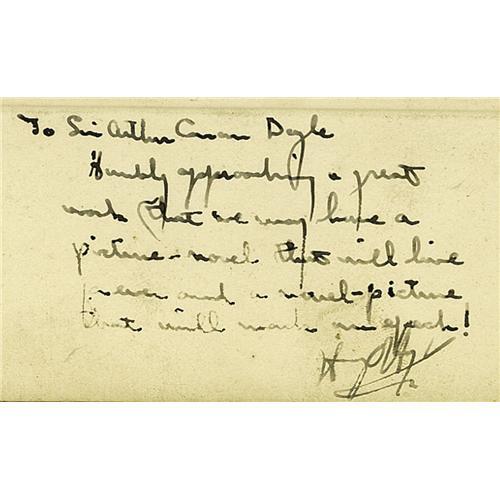 To Sir Arthur Conan Doyle
Humbly approaching a great
work that we may have a
picture-novel that will live
forever and a novel-picture
that will mark an epoch!